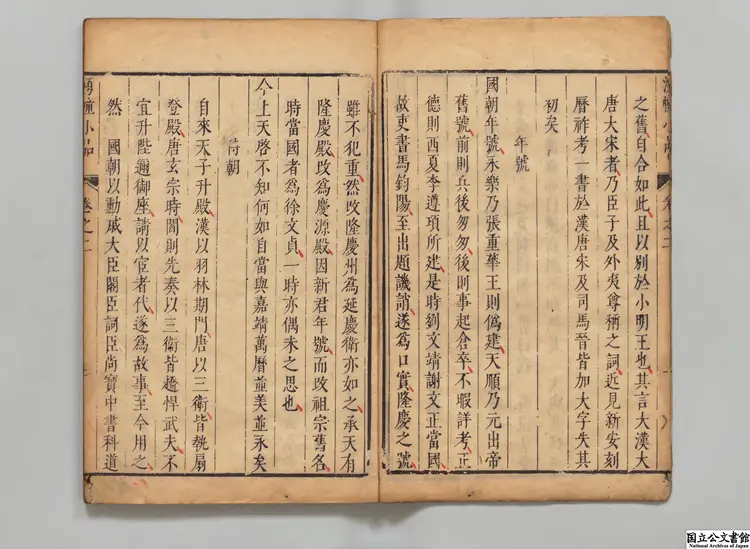 之舊自合如此且以別於小明王也其言大漢大
唐大宋者乃臣子及外夷尊稱之詞近見新安刻
曆祚考一書於漢唐宋及司馬晉皆加大字失其
初矣
年號
國朝年號永樂乃張重華王則僞建天順乃元出帝
舊號前則兵後匆匆後則事起倉卒不暇詳考正
德則西夏李遵項所建是時劉文靖謝文正當國
故吏書馬鈞陽至出題譏誚遂爲口實隆慶之號
雖不犯重然改隆慶州爲延慶衛亦如之承天有
隆慶殿改爲慶源殿因新君年號而改祖宗舊各
時當國者爲徐文貞一時亦偶未之思也
今上天啓不知何如自當與嘉靖萬曆並美並永矣
侍朝
自來天子升殿漢以羽林期門唐以三衛皆執扇
登殿唐玄宗時閣則先奏以三衛皆趫悍武夫不
宜升陛邇御座請以宦者代遂爲故事至今用之
然 國朝以勳戚大臣閣臣詞臣尚寶中書科道
湧幢小品 卷之二
国立公文書館
National Archives of Japan